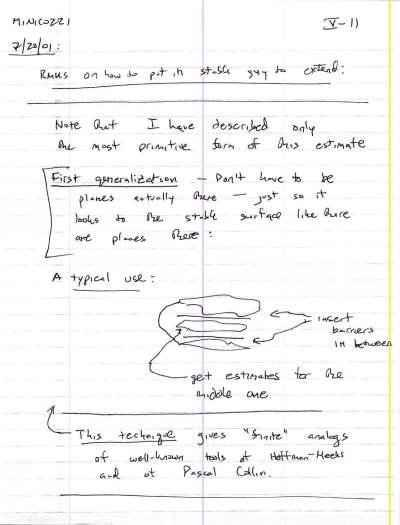 MINICOZZI
V-11
7/20/01:
Rmks on how to put in stable guy to extend:
Note that I have described only
the most primitive form of this estimate
First generalization — Don't have to be
planes actually there — just so it
looks to the stable surface like there
are planes there:
A typical use:
insert
barriers
in between
get estimates for the
middle one
This technique gives "finite" analogs
of well-known tools of Hoffman-Meeks
and of Pascal Collin.